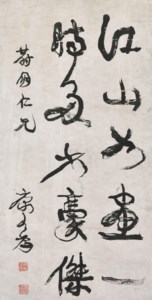 江山如畫一
時多少豪傑
仁兄
康有為